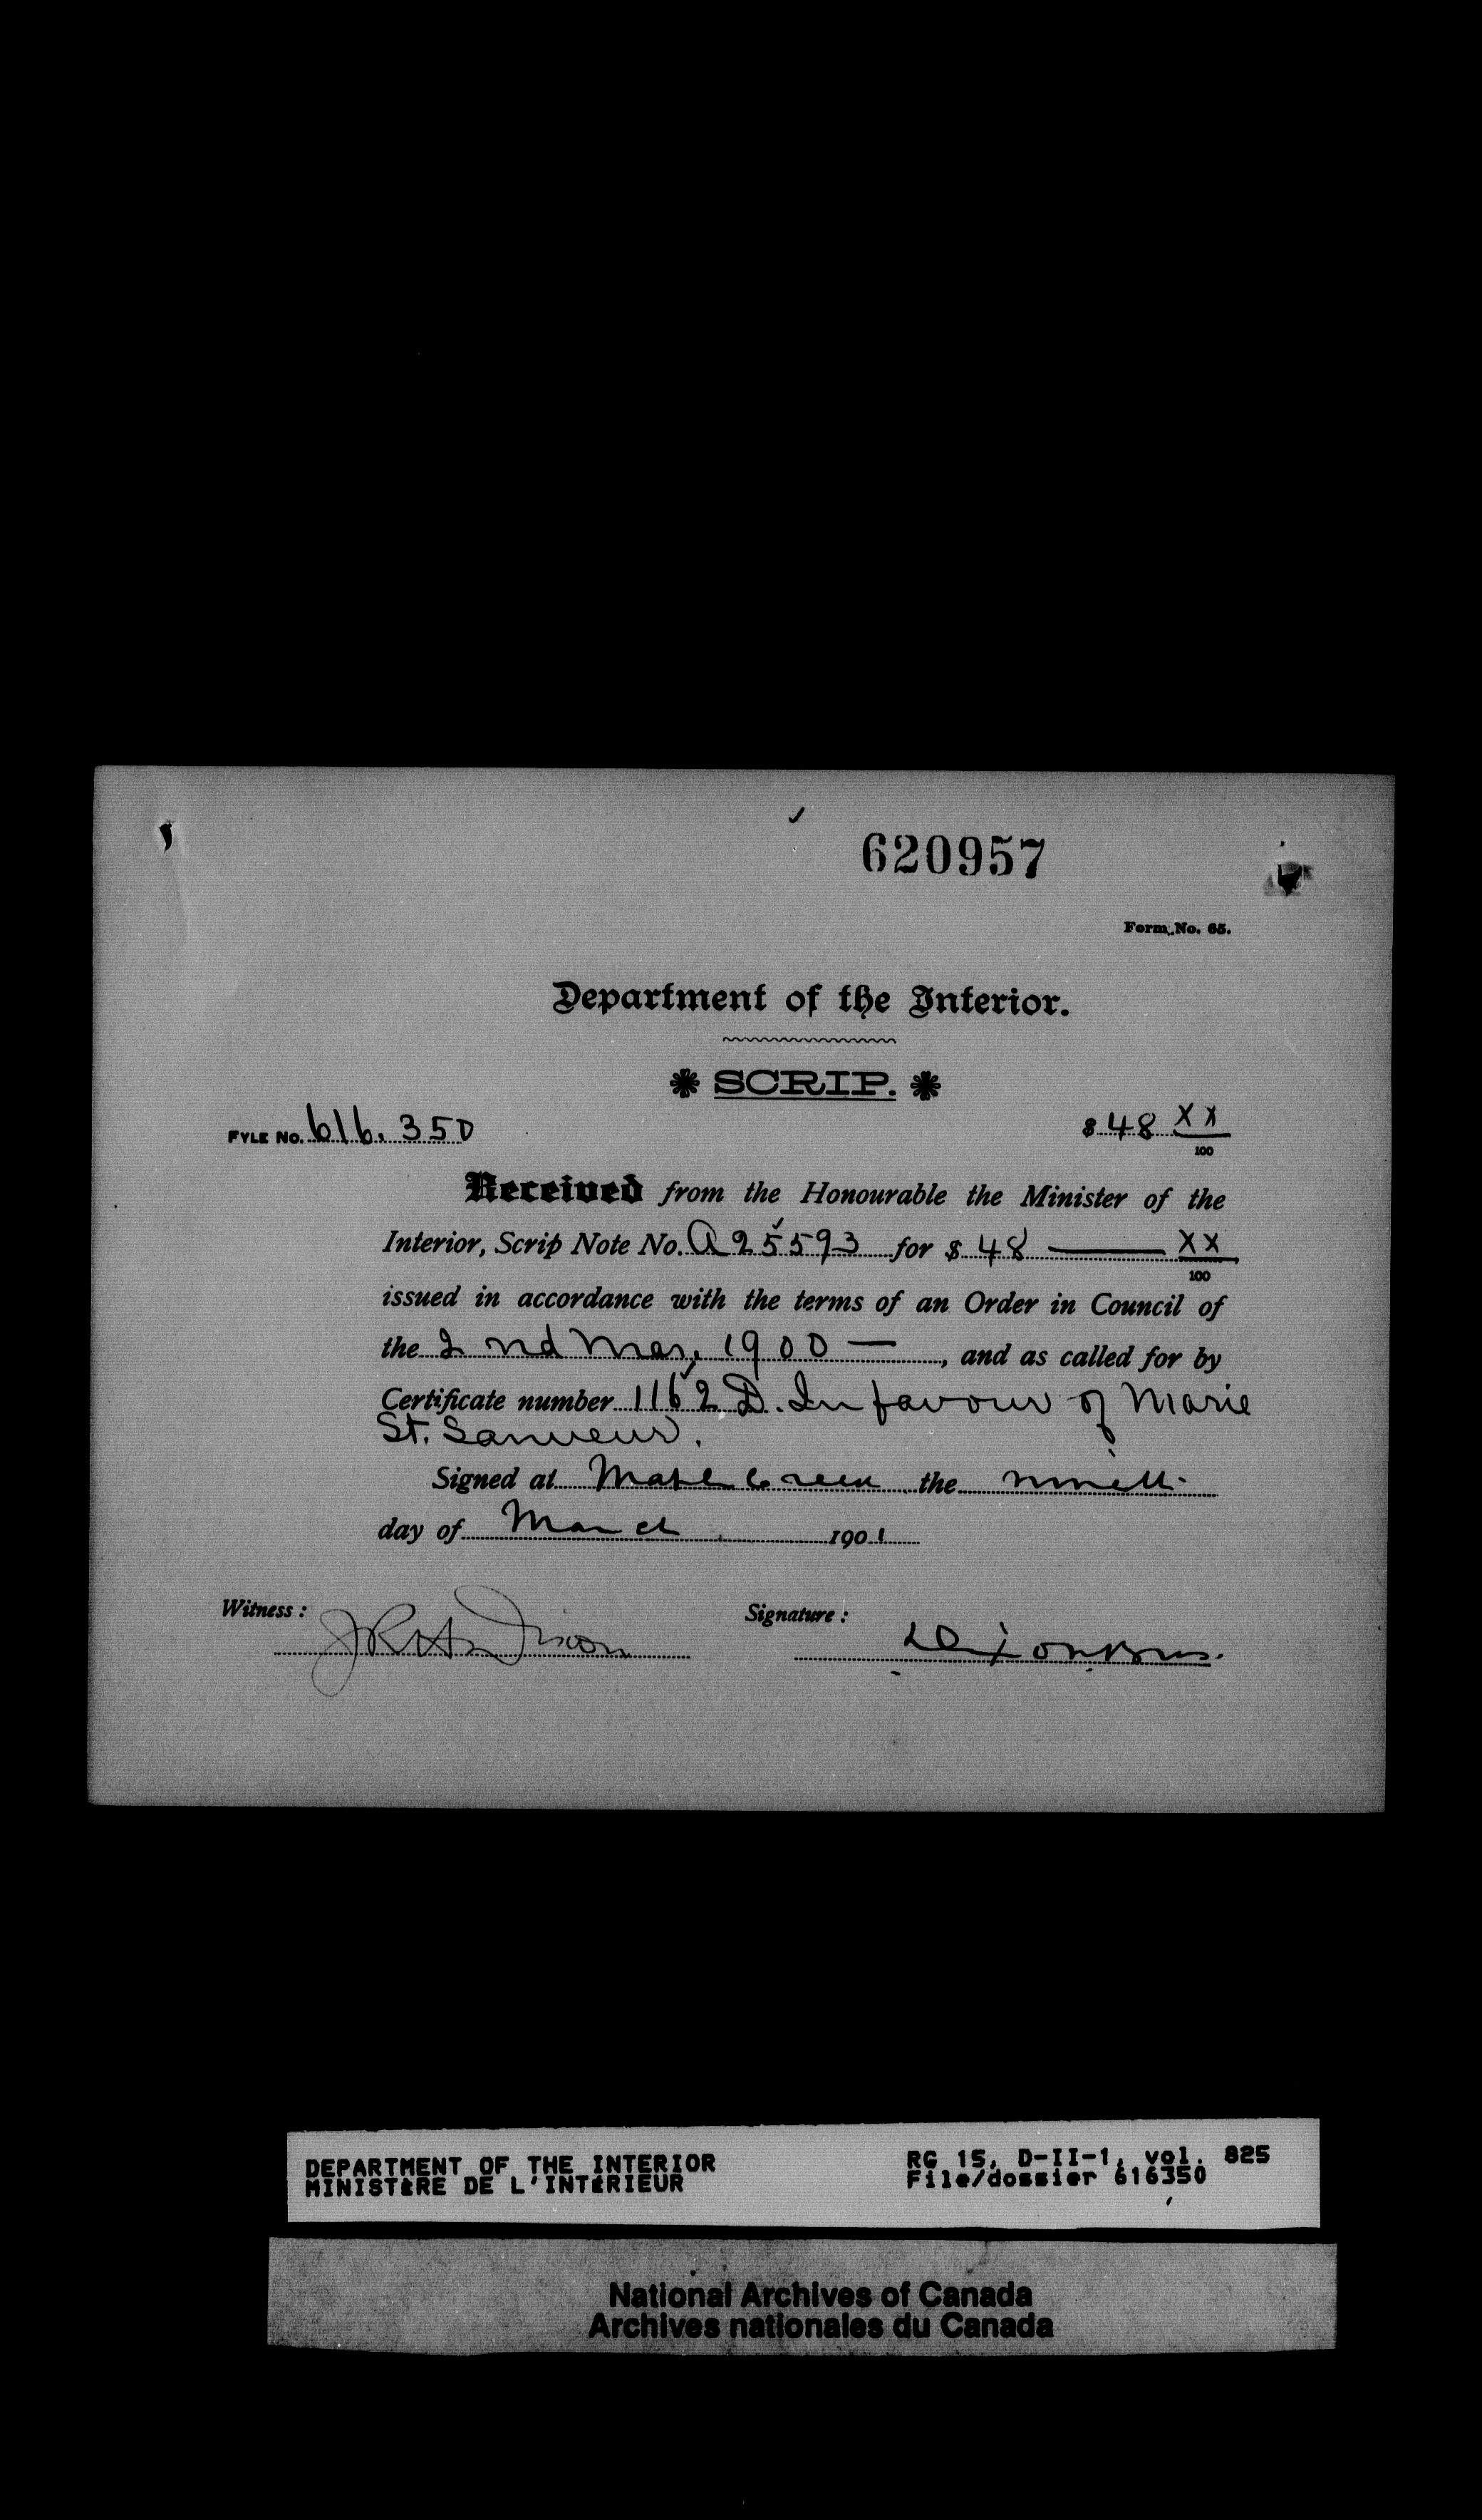 620957
Form No. 65.
Department of the Interior.
SCRIP.
FYLE No. 616.350 $ 48 XX/100
Received from the Honourable the Minister of the
Interior, Scrip Note No. A25593 for $ 48 — XX/100
issued in accordance with the terms of an Order in Council of
the 2nd Mar, 1900 —, and as called for by
Certificate number 1162 D. In favour of Marie
St. Sauveur.
Signed at Maple Creek the ninth
day of March 1901
Witness: Signature:
Dixon Bros.
DEPARTMENT OF THE INTERIOR RG 15, D-II-1, vol. 825
MINISTÈRE DE L'INTÉRIEUR File/dossier 616350
National Archives of Canada
Archives nationales du Canada